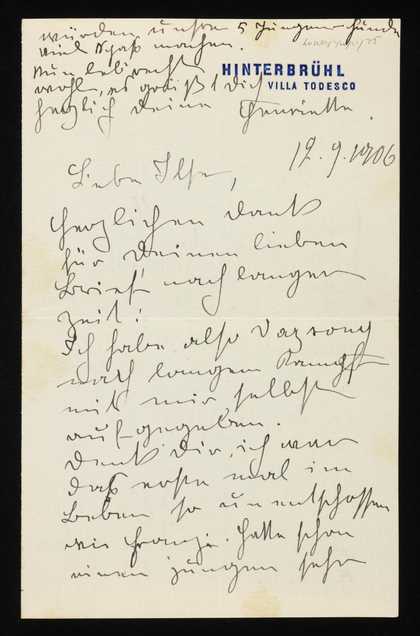 würden unsre 5 jungen Hunde
viel Spaß machen.
Nun lebe recht
wohl, es grüßt Dich
herzlich Deine Henriette.
HINTERBRÜHL
VILLA TODESCO
12.9.1906
Liebe Ilse,
Herzlichen Dank
für Deinen lieben
Brief nach langer
Zeit!
Ich habe also
nach langem Kampf
mit mir selbst
aufgegeben.
Denk Dir, ich war
das erste mal im
Leben so unentschlossen
wie Hatte schon
einen jungen sehr